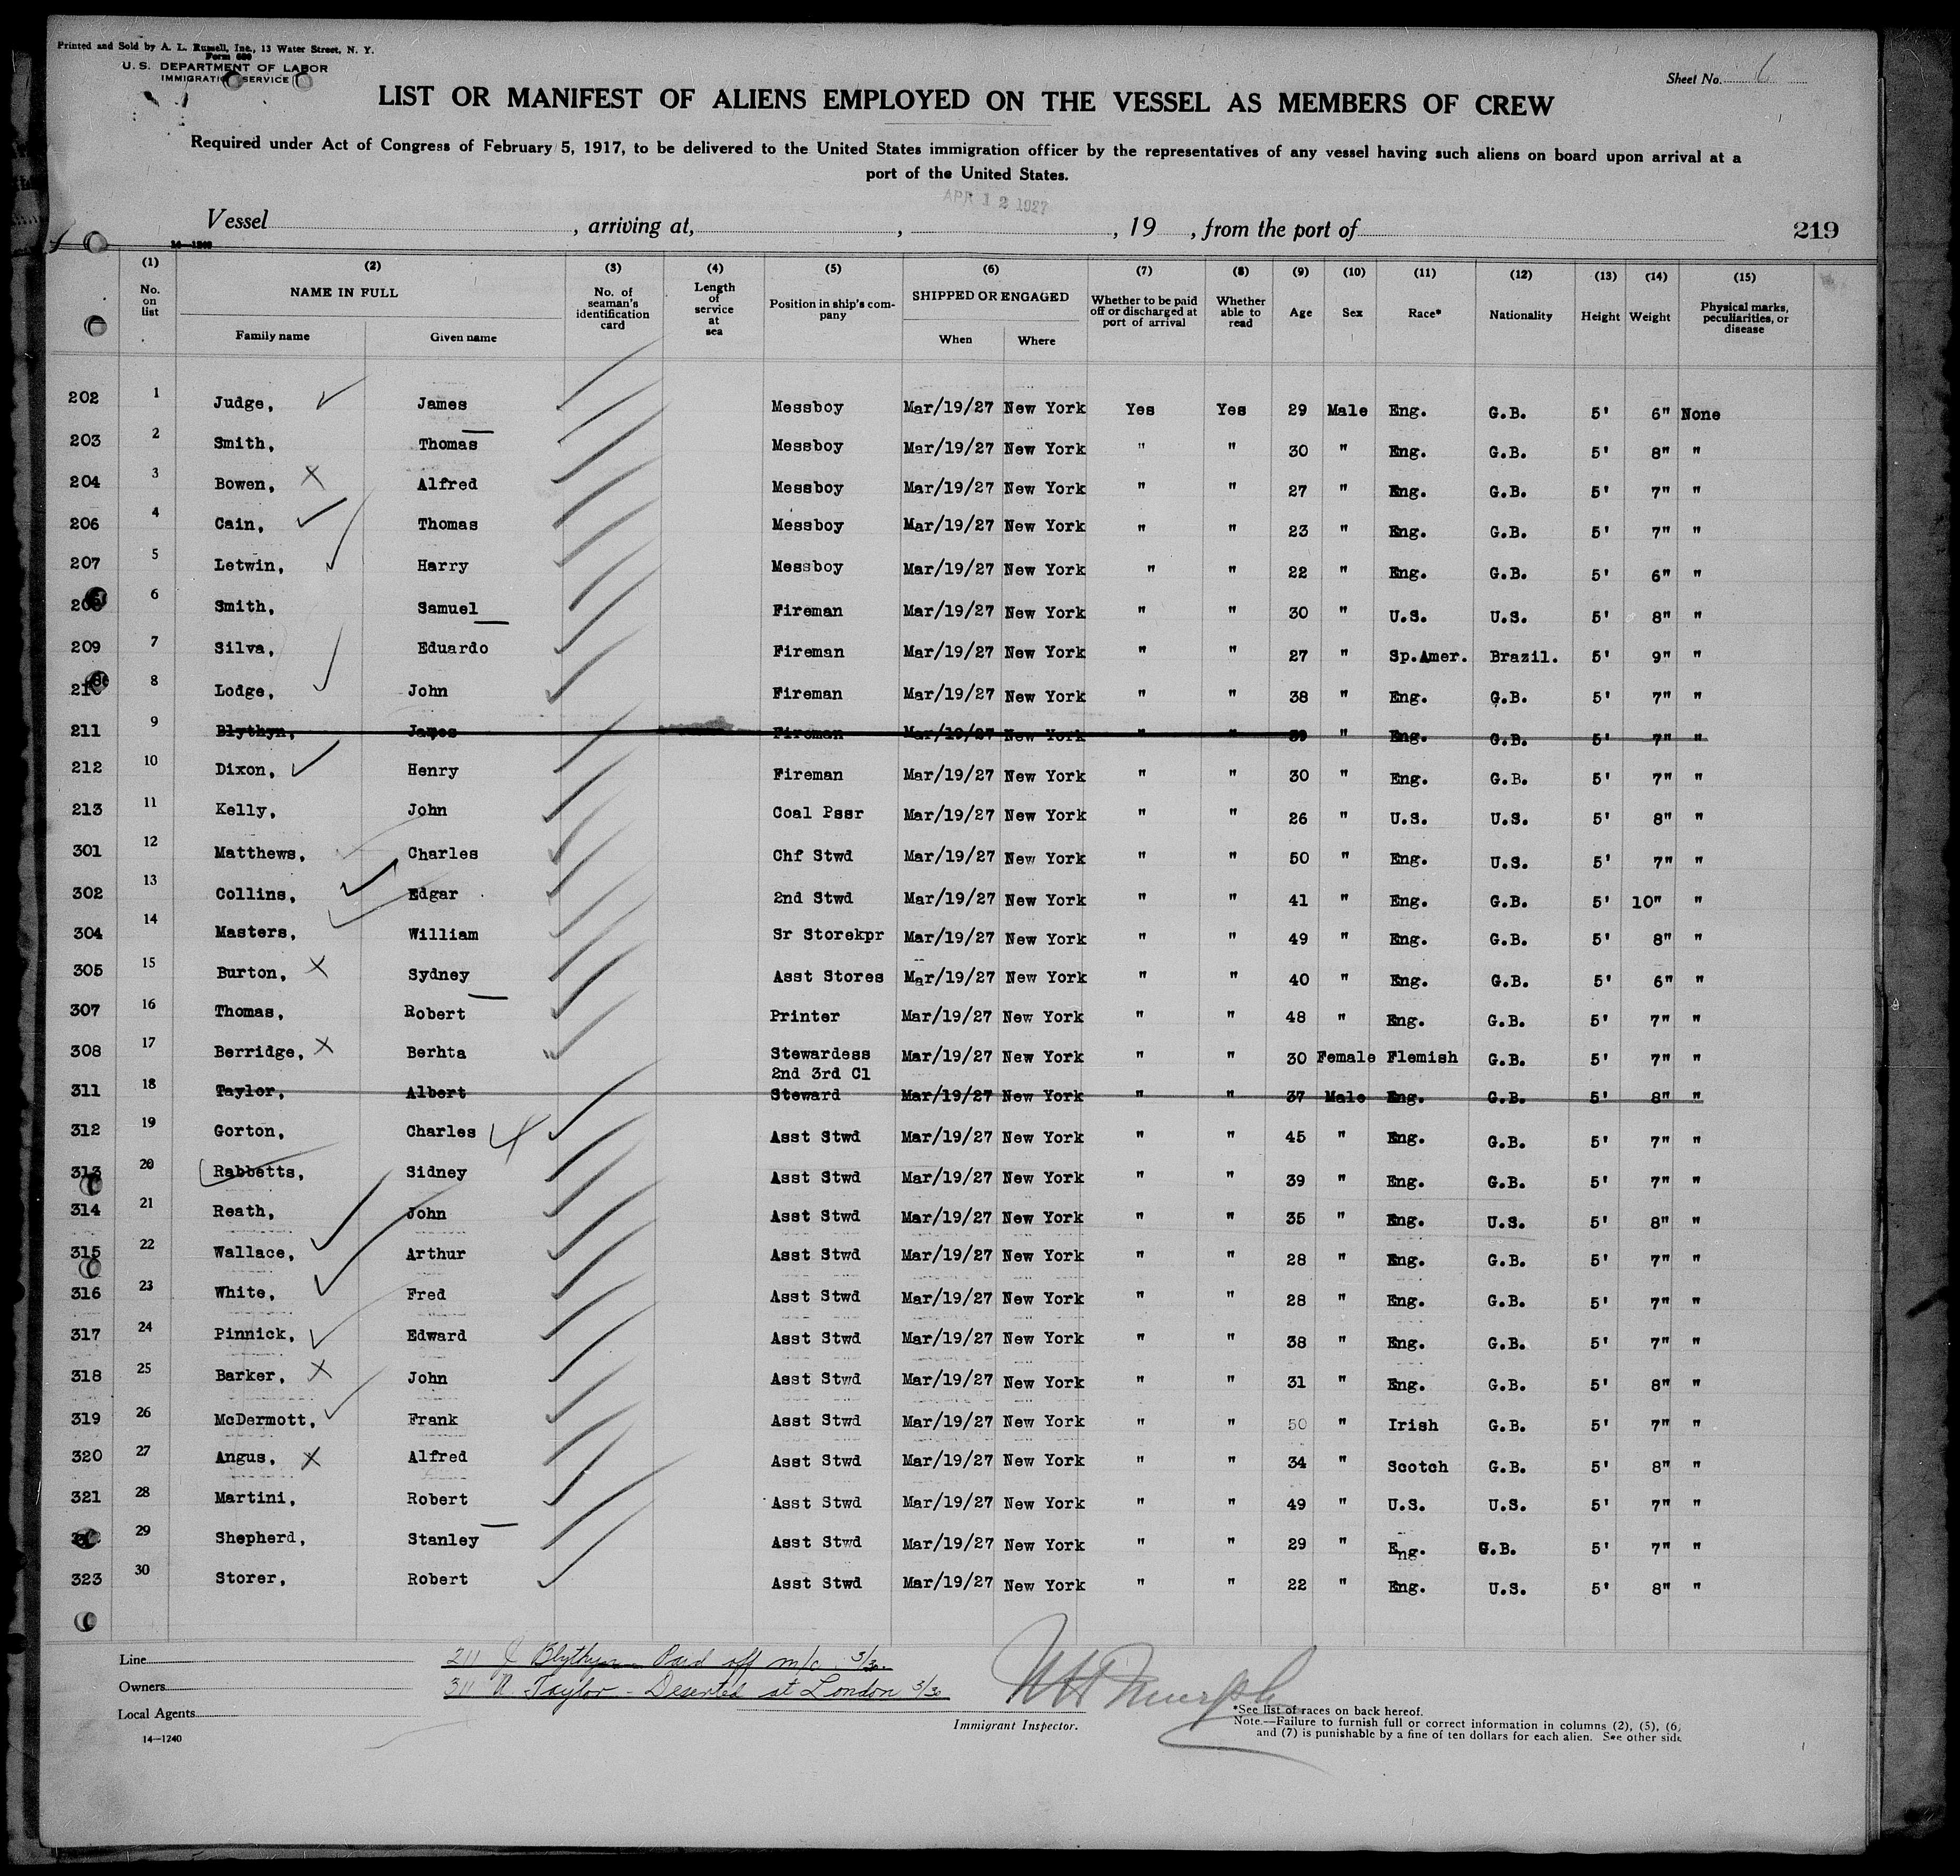 Printed and Sold by A. L. Russell, Inc., 13 Water Street, N. Y.
Form 680
U. S. DEPARTMENT OF LABOR
IMMIGRATION SERVICE
Sheet No.
LIST OR MANIFEST OF ALIENS EMPLOYED ON THE VESSEL AS MEMBERS OF CREW
Required under Act of Congress of February 5, 1917, to be delivered to the United States immigration officer by the representatives of any vessel having such aliens on board upon arrival at a
port of the United States.
APR 12 1927
Vessel , arriving at, , , 19 , from the port of 219
14—1240
(1) (2) (3) (4) (5) (6) (7) (8) (9) (10) (11) (12) (13) (14) (15)
No. on list NAME IN FULL No. of seaman's identification card Length of service at sea Position in ship's company SHIPPED OR ENGAGED Whether to be paid off or discharged at port of arrival Whether able to read Age Sex Race* Nationality Height Weight Physical marks, peculiarities, or disease
Family name Given name When Where
202 1 Judge, James Messboy Mar/19/27 New York Yes Yes 29 Male Eng. G.B. 5' 6" None
203 2 Smith, Thomas Messboy Mar/19/27 New York " " 30 " Eng. G.B. 5' 8" "
204 3 Bowen, X Alfred Messboy Mar/19/27 New York " " 27 " Eng. G.B. 5' 7" "
206 4 Cain, Thomas Messboy Mar/19/27 New York " " 23 " Eng. G.B. 5' 7" "
207 5 Letwin, Harry Messboy Mar/19/27 New York " " 22 " Eng. G.B. 5' 6" "
6 Smith, Samuel Fireman Mar/19/27 New York " " 30 " U.S. U.S. 5' 8" "
209 7 Silva, Eduardo Fireman Mar/19/27 New York " " 27 " Sp.Amer. Brazil. 5' 9" "
8 Lodge, John Fireman Mar/19/27 New York " " 38 " Eng. G.B. 5' 7" "
211 9 Blythyn, James Fireman Mar/19/27 New York " " 39 " Eng. G.B. 5' 7" "
212 10 Dixon, Henry Fireman Mar/19/27 New York " " 30 " Eng. G.B. 5' 7" "
213 11 Kelly, John Coal Pssr Mar/19/27 New York " " 26 " U.S. U.S. 5' 8" "
301 12 Matthews, Charles Chf Stwd Mar/19/27 New York " " 50 " Eng. U.S. 5' 7" "
302 13 Collins, Edgar 2nd Stwd Mar/19/27 New York " " 41 " Eng. G.B. 5' 10" "
304 14 Masters, William Sr Storekpr Mar/19/27 New York " " 49 " Eng. G.B. 5' 8" "
305 15 Burton, X Sydney Asst Stores Mar/19/27 New York " " 40 " Eng. G.B. 5' 6" "
307 16 Thomas, Robert Printer Mar/19/27 New York " " 48 " Eng. G.B. 5' 7" "
308 17 Berridge, X Berhta Stewardess Mar/19/27 New York " " 30 Female Flemish G.B. 5' 7" "
2nd 3rd Cl
311 18 Taylor, Albert Steward Mar/19/27 New York " " 37 Male Eng. G.B. 5' 8" "
312 19 Gorton, Charles Asst Stwd Mar/19/27 New York " " 45 " Eng. G.B. 5' 7" "
313 20 Rabbetts, Sidney Asst Stwd Mar/19/27 New York " " 39 " Eng. G.B. 5' 7" "
314 21 Reath, John Asst Stwd Mar/19/27 New York " " 35 " Eng. U.S. 5' 8" "
315 22 Wallace, Arthur Asst Stwd Mar/19/27 New York " " 28 " Eng. G.B. 5' 7" "
316 23 White, Fred Asst Stwd Mar/19/27 New York " " 28 " Eng. G.B. 5' 7" "
317 24 Pinnick, Edward Asst Stwd Mar/19/27 New York " " 38 " Eng. G.B. 5' 7" "
318 25 Barker, X John Asst Stwd Mar/19/27 New York " " 31 " Eng. G.B. 5' 8" "
319 26 McDermott, Frank Asst Stwd Mar/19/27 New York " " 50 " Irish G.B. 5' 7" "
320 27 Angus, X Alfred Asst Stwd Mar/19/27 New York " " 34 " Scotch G.B. 5' 8" "
321 28 Martini, Robert Asst Stwd Mar/19/27 New York " " 49 " U.S. U.S. 5' 7" "
29 Shepherd, Stanley Asst Stwd Mar/19/27 New York " " 29 " Eng. G.B. 5' 7" "
323 30 Storer, Robert Asst Stwd Mar/19/27 New York " " 22 " Eng. U.S. 5' 8" "
Line
Owners
Local Agents
14—1240
211 J Blythyn Paid off m/c 3/30
311 A Taylor - Deserted at London 3/30
Immigrant Inspector.
*See list of races on back hereof.
Note.—Failure to furnish full or correct information in columns (2), (5), (6)
and (7) is punishable by a fine of ten dollars for each alien. See other side